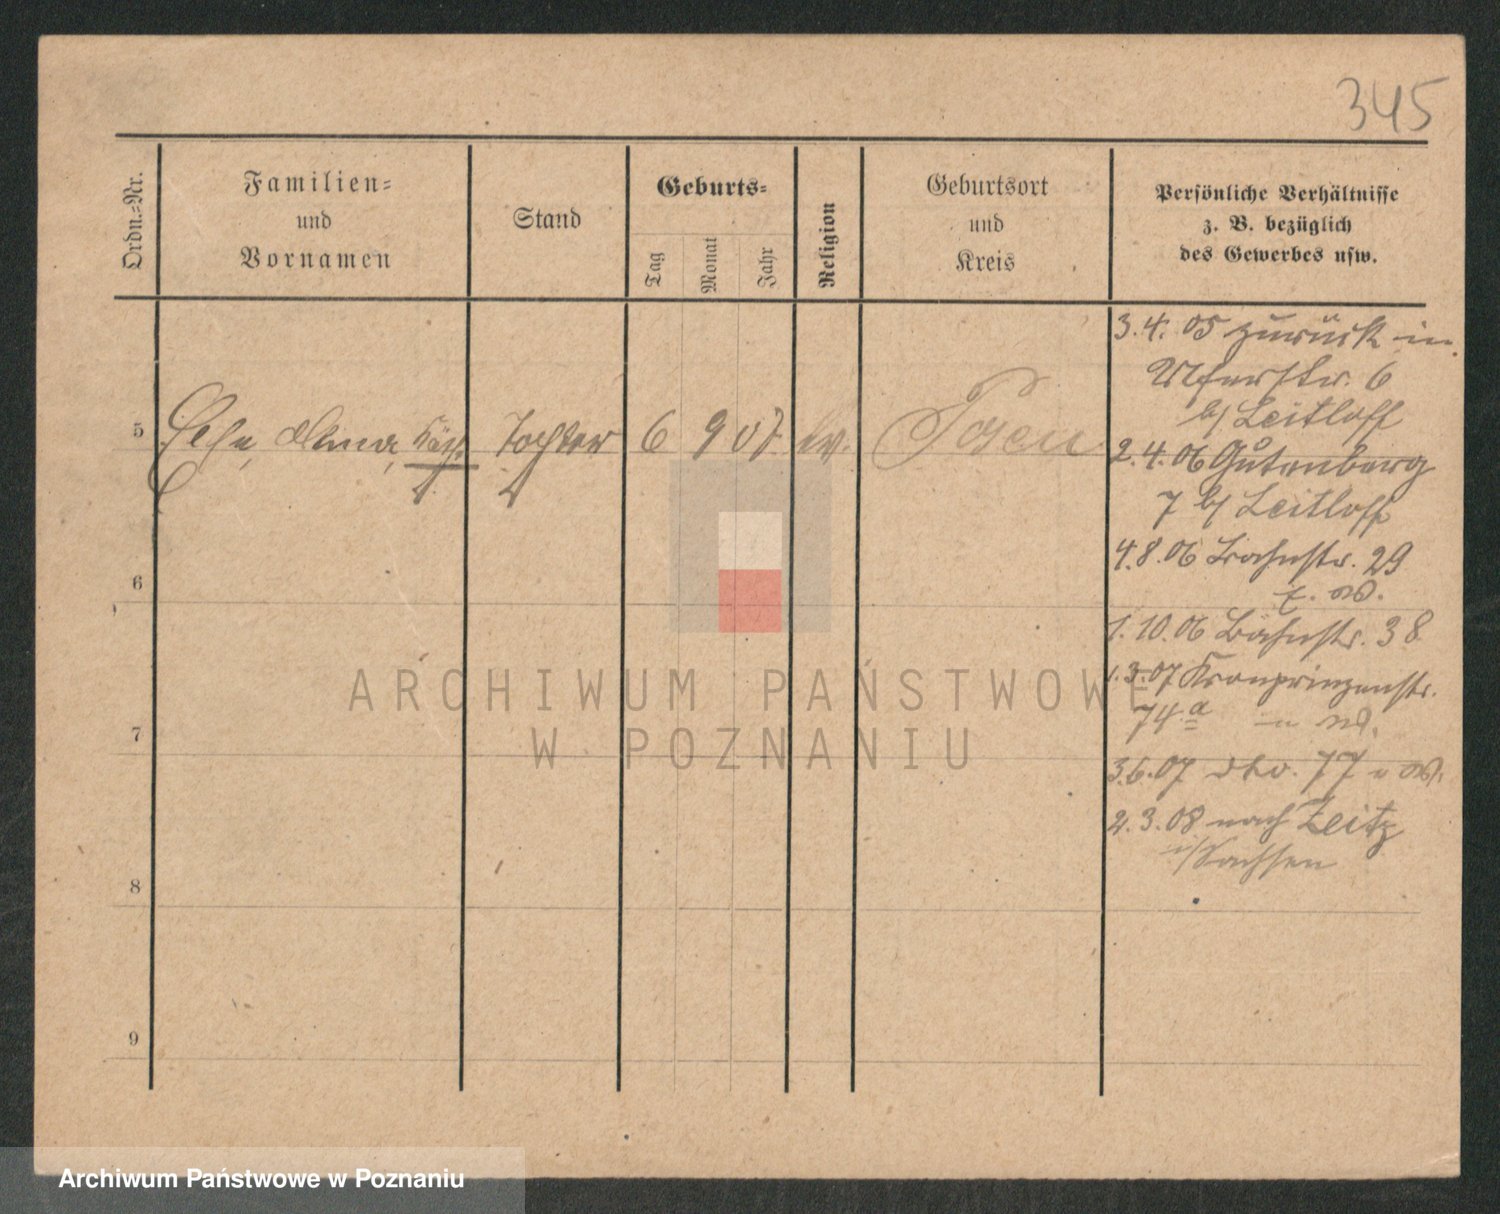 345
Ordn.-Nr.
Familien-
und
Vornamen
Stand
Geburts-
Tag
Monat
Jahr
Religion
Geburtsort
und
Kreis
Persönliche Verhältnisse
z. B. bezüglich
des Gewerbes usw.
5
Else, Alma, Käth. Tochter 6 9 07 ev. Posen
6
7
8
9
3.4.05 zurück in
Uferstr. 6
b/ Leitloff
2.4.06 Gutenberg
7 b/ Leitloff
4.8.06 Bahnstr. 29
1.10.06 Bahnstr. 38
1.3.07 Kronprinzenstr.
74 a
3.6.07 dto. 77
2.3.08 nach Zeitz
i/Sachsen
ARCHIWUM PAŃSTWOWE
W POZNANIU
Archiwum Państwowe w Poznaniu